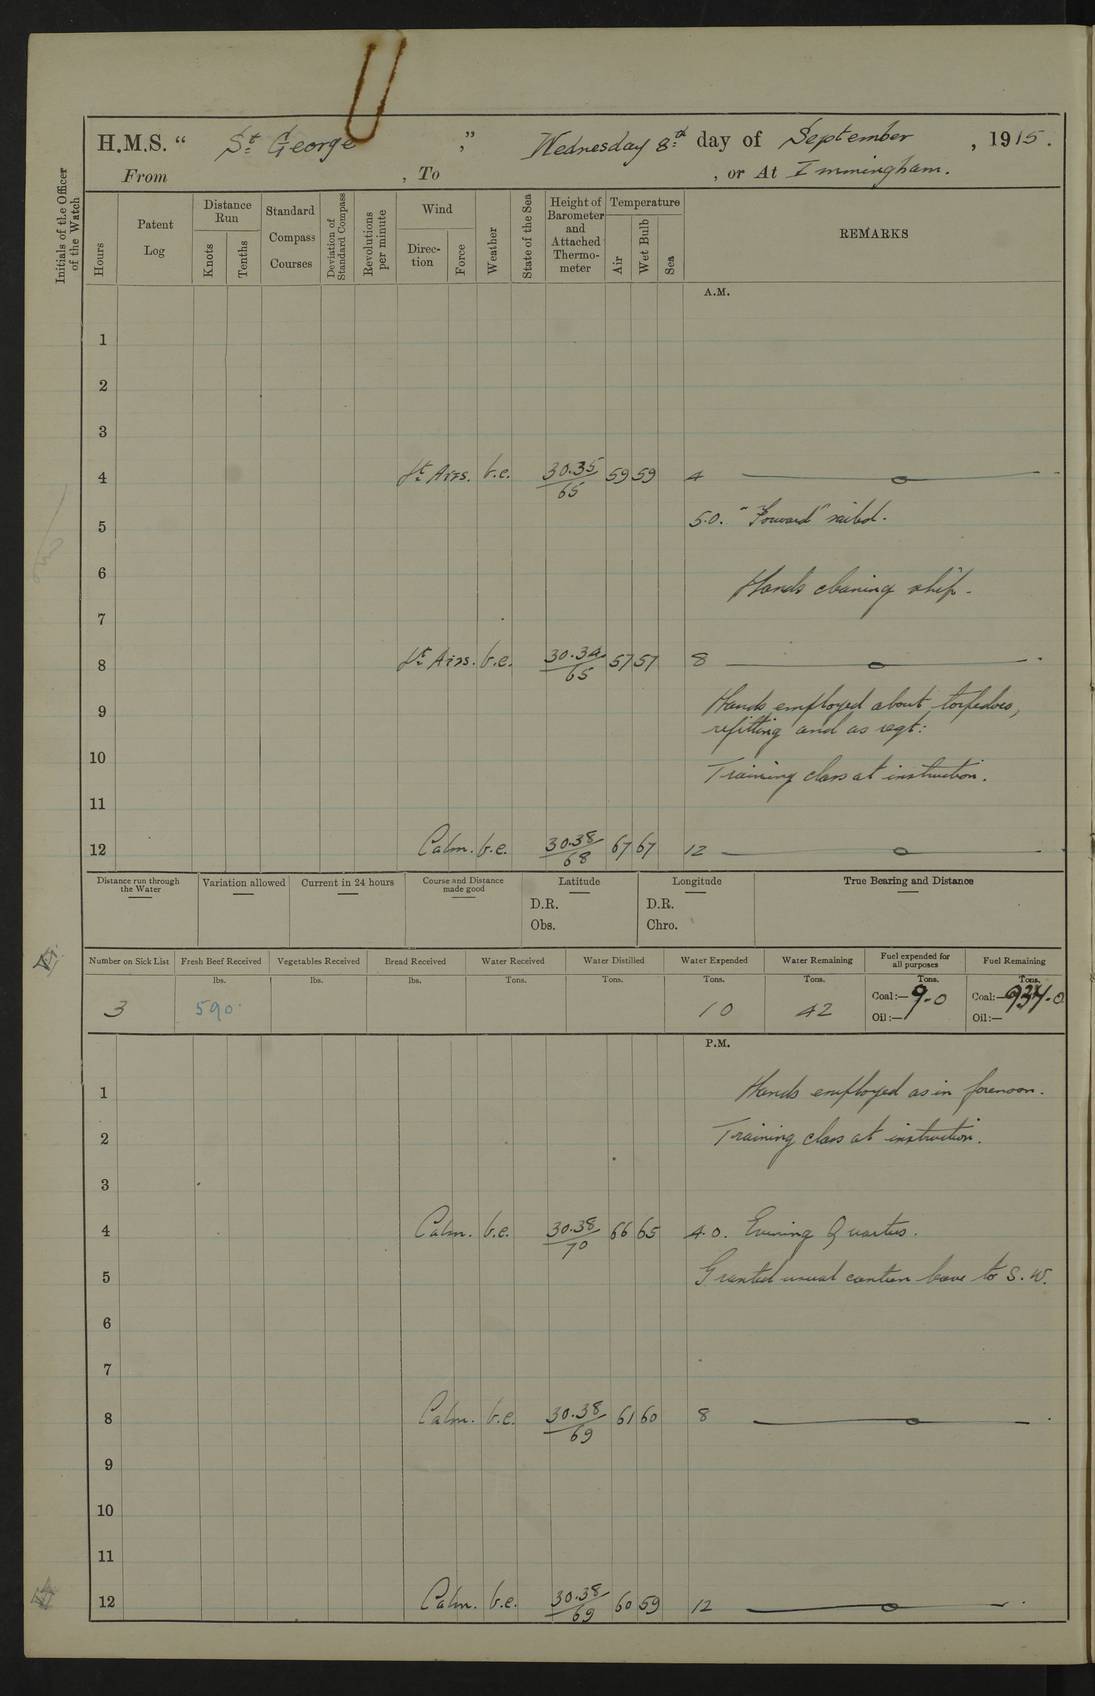 H.M.S. “ St George ” Wednesday 8th day of September, 1915.
From , To , or At Immingham.
Initials of the Officer of the Watch
Hours
Patent Log
Distance Run
Knots
Tenths
Standard Compass Courses
Deviation of Standard Compass
Revolutions per minute
Wind
Direction
Force
Weather
State of the Sea
Height of Barometer and Attached Thermometer
Temperature
Air
Wet Bulb
Sea
REMARKS
A.M.
1
2
3
4 Lt Airs. b.c. 30.35/65 59 59 4
5 5.0. "Forward" sailed.
6 Hands cleaning ship.
7
8 Lt Airs. b.c. 30.34/65 57 57 8
9 Hands employed about torpedoes,
refitting and as reqt:
10 Training class at instruction.
11
12 Calm. b.c. 30.38/68 67 67 12
Distance run through the Water
Variation allowed
Current in 24 hours
Course and Distance made good
Latitude
D.R.
Obs.
Longitude
D.R.
Chro.
True Bearing and Distance
Number on Sick List Fresh Beef Received Vegetables Received Bread Received Water Received Water Distilled Water Expended Water Remaining Fuel expended for all purposes Fuel Remaining
lbs. lbs. lbs. Tons. Tons. Tons. Tons. Tons. Tons.
3 590 10 42 Coal:— 9.0 Coal:— 934.0
Oil:— Oil:—
P.M.
1 Hands employed as in forenoon.
2 Training class at instruction.
3
4 Calm. b.c. 30.38/70 66 65 4.0. Evening Quarters.
5 Granted usual canteen leave to S.W.
6
7
8 Calm. b.c. 30.38/69 61 60 8
9
10
11
12 Calm. b.c. 30.38/69 60 59 12